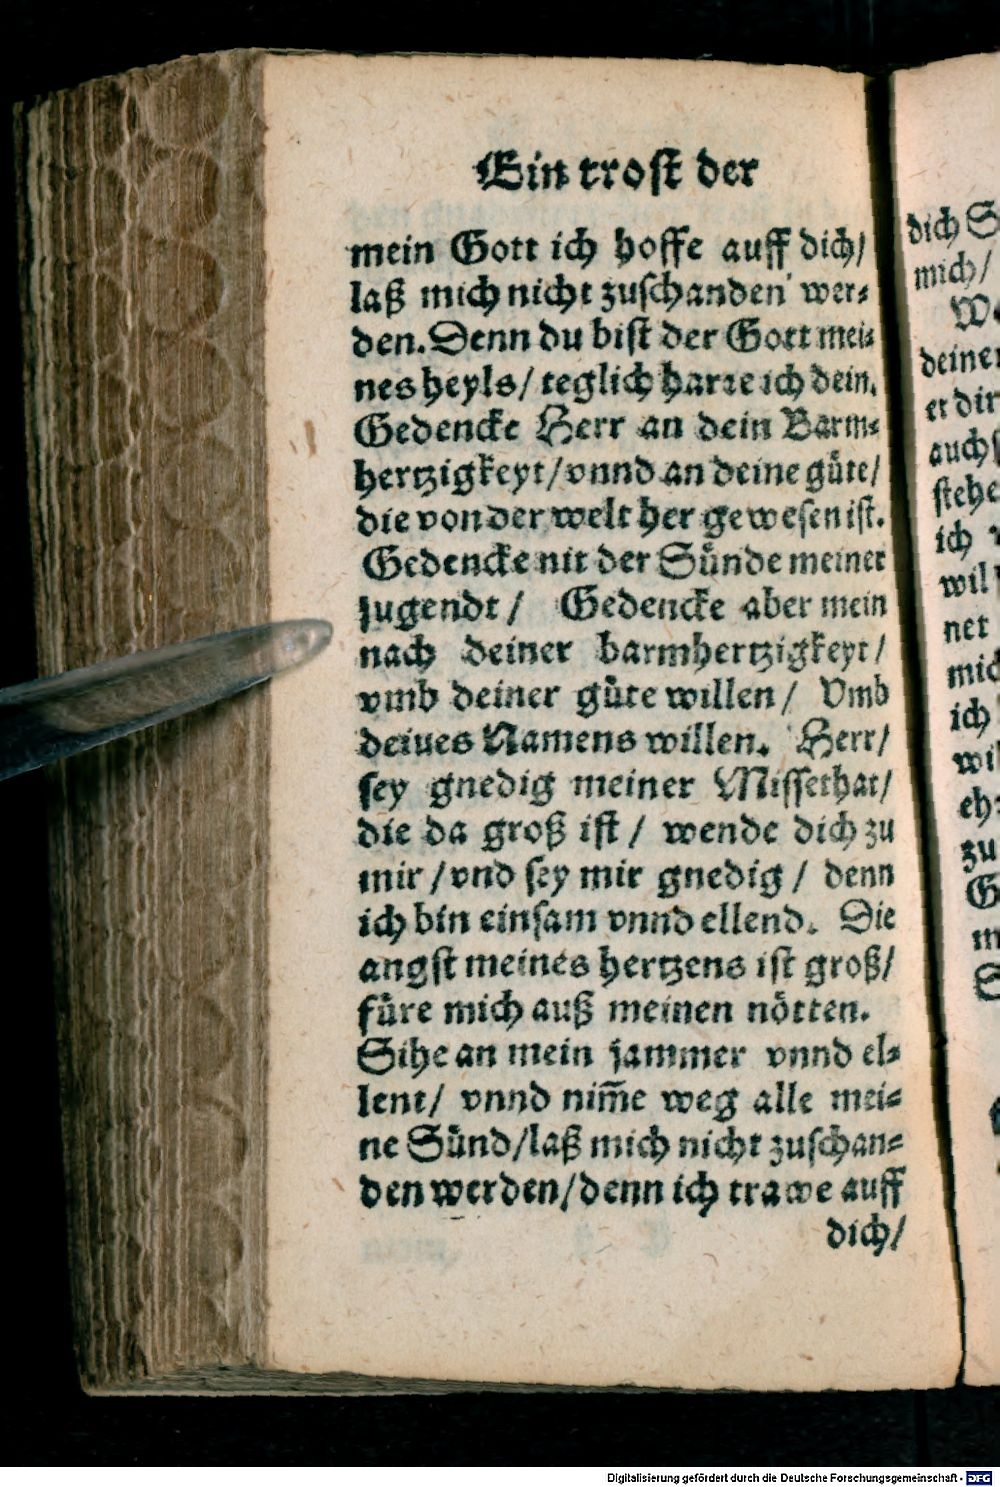 Ein trost der
mein Gott ich hoffe auff dich/
laß mich nicht zuschanden wer-
den. Denn du bist der Gott mei-
nes heyls/ teglich harre ich dein.
Gedencke Herr an dein Barm-
hertzigkeyt/ vnnd an deine güte/
die von der welt her gewesen ist.
Gedencke nit der Sünde meiner
jugendt/ Gedencke aber mein
nach deiner barmhertzigkeyt/
vmb deiner güte willen/ Vmb
deiues Namens willen. Herr/
sey gnedig meiner Missethat/
die da groß ist/ wende dich zu
mir/ vnd sey mir gnedig/ denn
ich bin einsam vnnd ellend. Die
angst meines hertzens ist groß/
füre mich auß meinen nötten.
Sihe an mein jammer vnnd el-
lent/ vnnd nim̃e weg alle mei-
ne Sünd/ laß mich nicht zuschan-
den werden/ denn ich trawe auff
dich/
dich
mich/
deiner
er dir
auch
stehe
ich
wil
net
mich
ich
zu
Digitalisierung gefördert durch die Deutsche Forschungsgemeinschaft - DFG